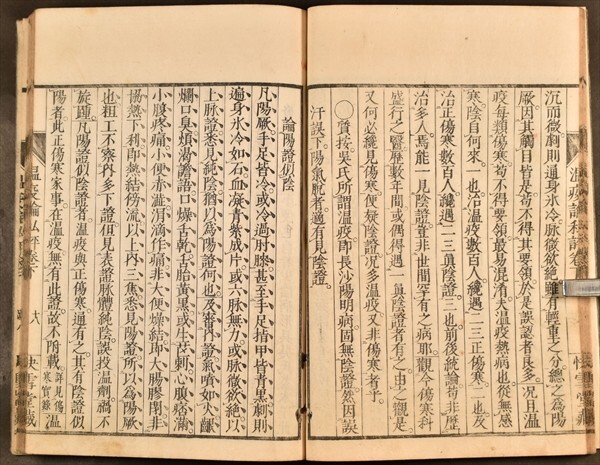 温疫論私評卷
沉而微劇則通身氷冷脉微欲絶雖有輕重之分總之為陽
厥因其觸目皆是苟不得其要領於是誤認者良多況且温
疫每類傷寒苟不得要領最易混淆夫温疫熱病也從無感
寒陰自何來一也治温疫數百人纔遇一二正傷寒二也及
治正傷寒數百人纔遇一二眞陰證三也前後統論苟非歴
治多人焉能一見陰證豈非世間罕有之病耶觀今傷寒科
盛行之醫歴數年間或偶得遇一眞陰證者有之由之觀是
又何必纔見傷寒便疑陰證況多温疫又非傷寒者乎
○質按吳氏所謂温疫即長沙陽明病固無陰證然因誤
汗誤下陽氣脱者適有見陰證
論陽證似陰
凡陽厥手足皆冷或冷過肘膝甚至手足指甲皆青黒劇則
遍身氷冷如石血凝青紫成片或六脉無力或脉微欲絶以
上脉證悉見純陰猶以為陽證何也及審内證氣噴如火齦
爛口臭煩渴譫語口燥舌乾舌胎黄黒或生芒刺心腹痞滿
小腹疼痛小便赤澁涓滴作痛非大便燥結即大腸膠閉非
協熱下利即熱結傍流以上内三焦悉見陽證所以為陽厥
也粗工不察内多下證但見表證脉體純陰誤投温劑禍不
旋踵凡陽證似陰者温疫與正傷寒通有之其有陰證似
陽者此正傷寒家事在温疫無有此證故不附載詳見傷寒實録温
温疫論私評卷 十八 快雪堂藏